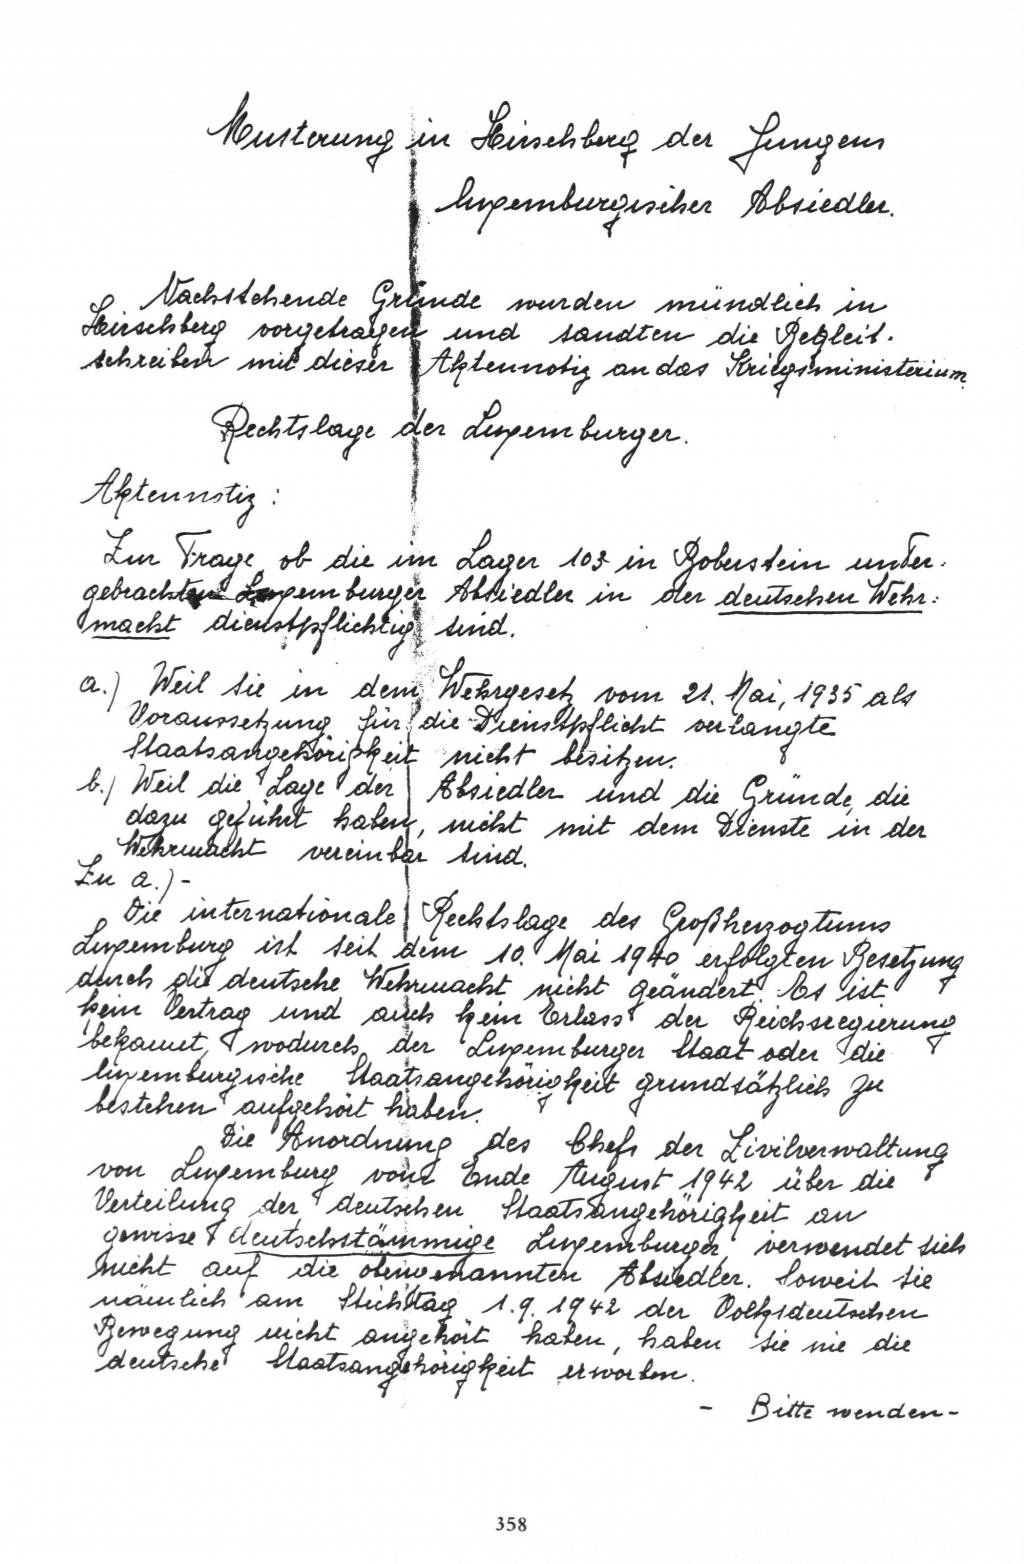 Musterung in Hirschberg der Jungens
luxemburgischer Absiedler.
Nachstehende Gründe wurden mündlich in
Hirschberg vorgetragen und sandten die Begleit-
schreiben mit dieser Aktennotiz an das Kriegsministerium.
Rechtslage der Luxemburger.
Aktennotiz:
Zur Frage, ob die im Lager 103 in Boberstein unter-
gebrachten Luxemburger Absiedler in der deutschen Wehr-
macht dienstpflichtig sind.
a.) Weil sie in dem Wehrgesetz vom 21. Mai, 1935 als
Voraussetzung für die Dienstpflicht verlangte
Staatsangehörigkeit nicht besitzen.
b.) Weil die Lage der Absiedler und die Gründe, die
dazu geführt haben, nicht mit dem Dienste in der
Wehrmacht vereinbar sind.
Zu a.) -
Die internationale Rechtslage des Großherzogtums
Luxemburg ist seit dem 10. Mai 1940 erfolgten Besetzung
durch die deutsche Wehrmacht nicht geändert. Es ist
kein Vertrag und auch kein Erlass der Reichsregierung
bekannt, wodurch der Luxemburger Staat oder die
luxemburgische Staatsangehörigkeit grundsätzlich zu
bestehen aufgehört haben.
Die Anordnung des Chefs der Zivilverwaltung
von Luxemburg vom Ende August 1942 über die
Verteilung der deutschen Staatsangehörigkeit an
gewisse deutschstämmige Luxemburger, verwendet sich
nicht auf die obengenannten Absiedler. Soweit sie
nämlich am Stichtag 1.9.1942 der Volksdeutschen
Bewegung nicht angehört haben, haben sie nie die
deutsche Staatsangehörigkeit erworben.
- Bitte wenden -
358